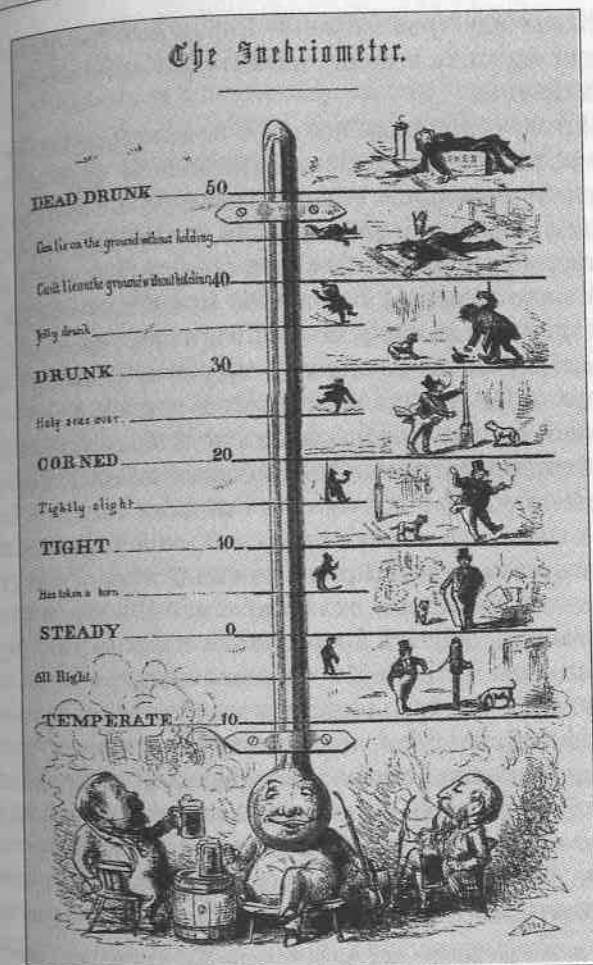 The Inebriometer.
DEAD DRUNK 50
Can lie on the ground without holding
Can't lie on the ground without holding 40
Jolly drunk
DRUNK 30
Half seas over.
CORNED 20
Tightly slight
TIGHT 10
Has taken a horn
STEADY 0
All Right
TEMPERATE 10